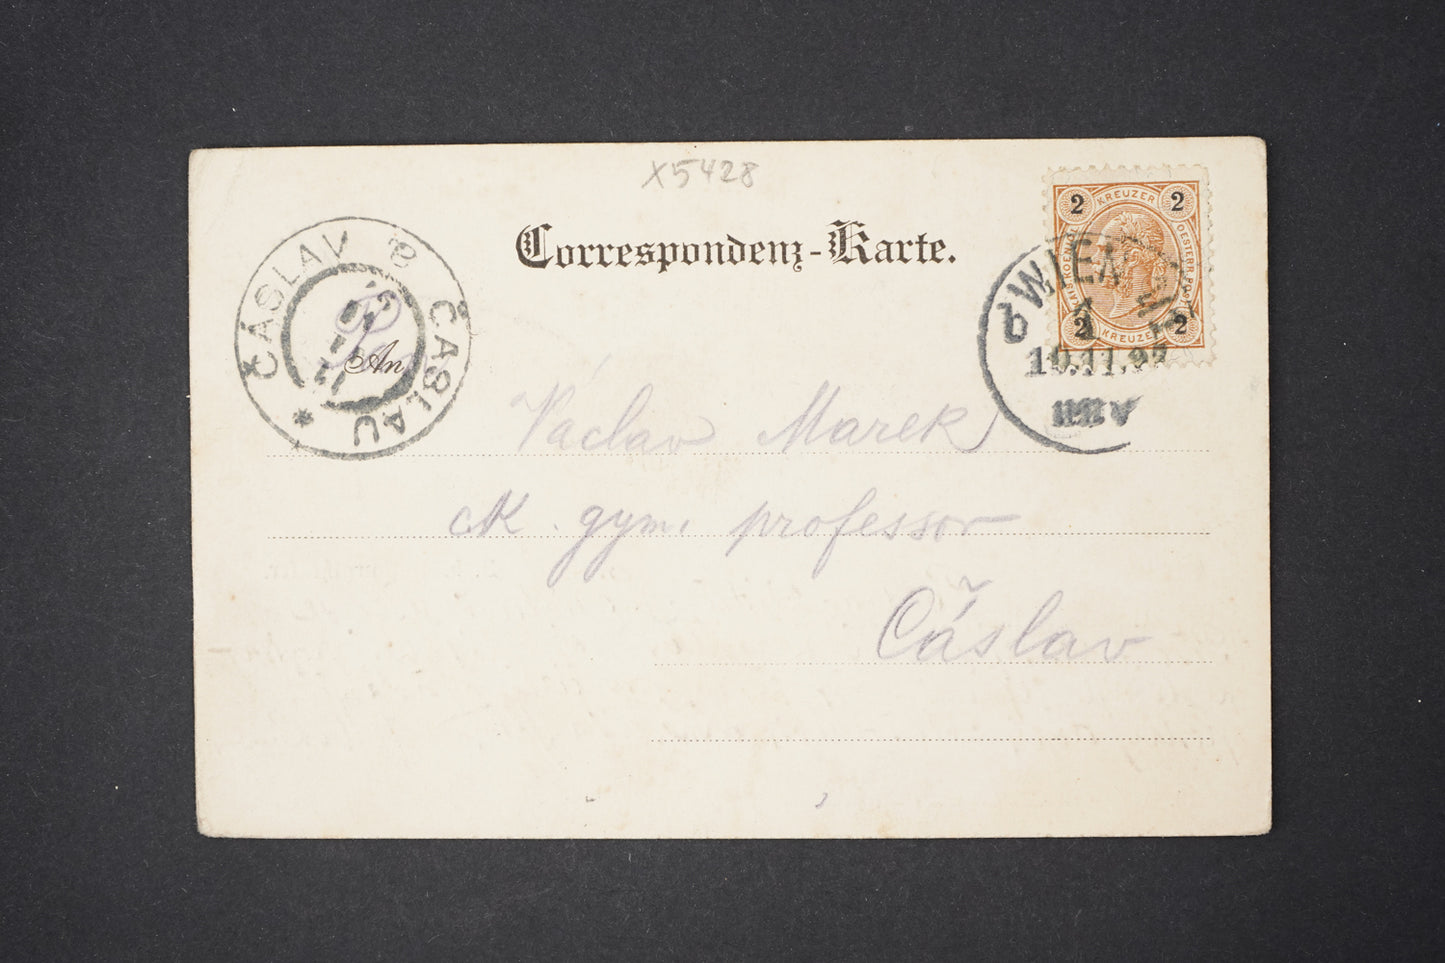 X5428
Correspondenz-Karte.
2 KREUZER 2
KAIS. KOENIGL. OESTERR. POST
2 KREUZER 2
WIEN
10.11.97
ČÁSLAV ČASLAU
An
Václav Marek
ck. gym. professor
Čáslav